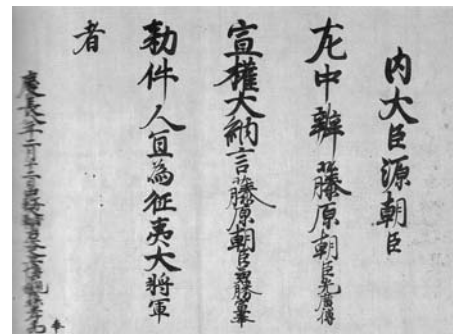 内大臣源朝臣
左中辨藤原朝臣光廣傳
宣權大納言藤原朝臣兼勝宣奉
勅件人宜為征夷大將軍
者
慶長八年二月十二日 奉